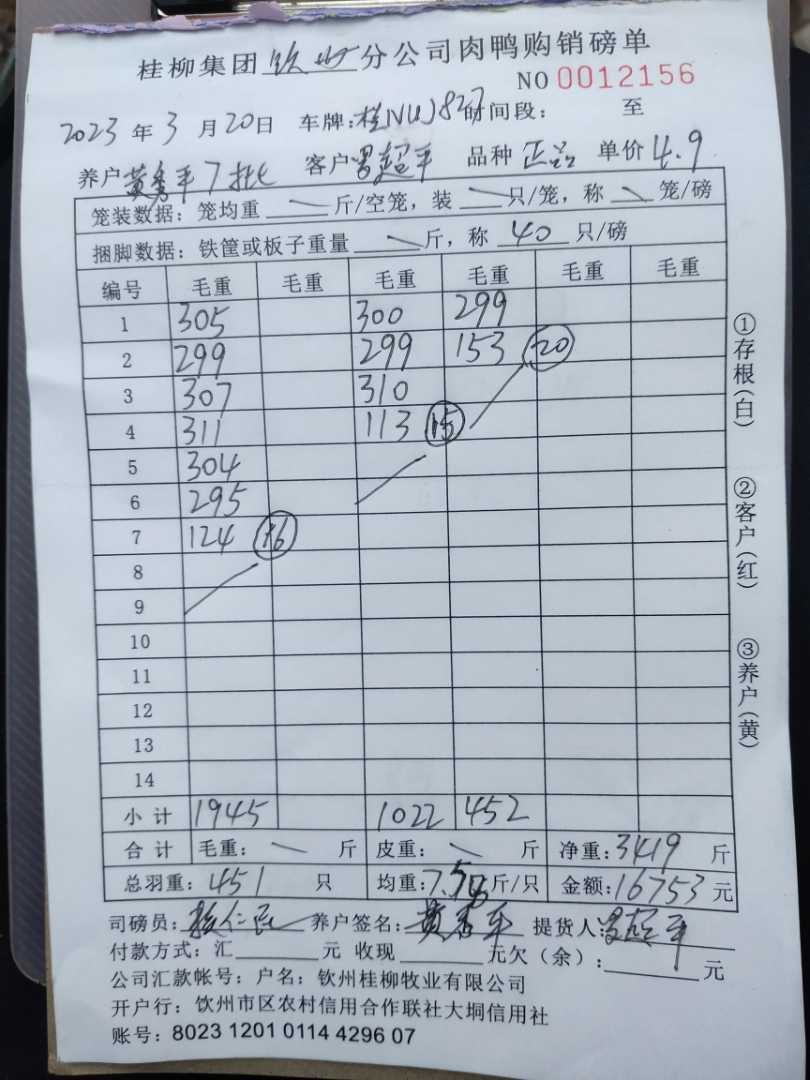 桂柳集团 钦州 分公司肉鸭购销磅单
NO 0012156
2023 年 3 月 20 日 车牌: 桂NWJ827 时间段: 至
养户 黄秀平7批 客户 超平 品种 正品 单价 4.9
笼装数据: 笼均重 斤/空笼, 装 只/笼, 称 笼/磅
捆脚数据: 铁筐或板子重量 斤, 称 40 只/磅
编号 毛重 毛重 毛重 毛重 毛重 毛重
1 305 300 299
2 299 299 153 20
3 307 310
4 311 113 15
5 304
6 295
7 124 16
8
9
10
11
12
13
14
小计 1945 1022 452
合计 毛重: 斤 皮重: 斤 净重: 3419 斤
总羽重: 451 只 均重: 7.58 斤/只 金额: 16753 元
司磅员: 养户签名: 黄秀平 提货人: 超平
付款方式: 汇 元 收现 元欠(余): 元
公司汇款帐号: 户名: 钦州桂柳牧业有限公司
开户行: 钦州市区农村信用合作联社大垌信用社
账号: 8023 1201 0114 4296 07
①存根(白)
②客户(红)
③养户(黄)